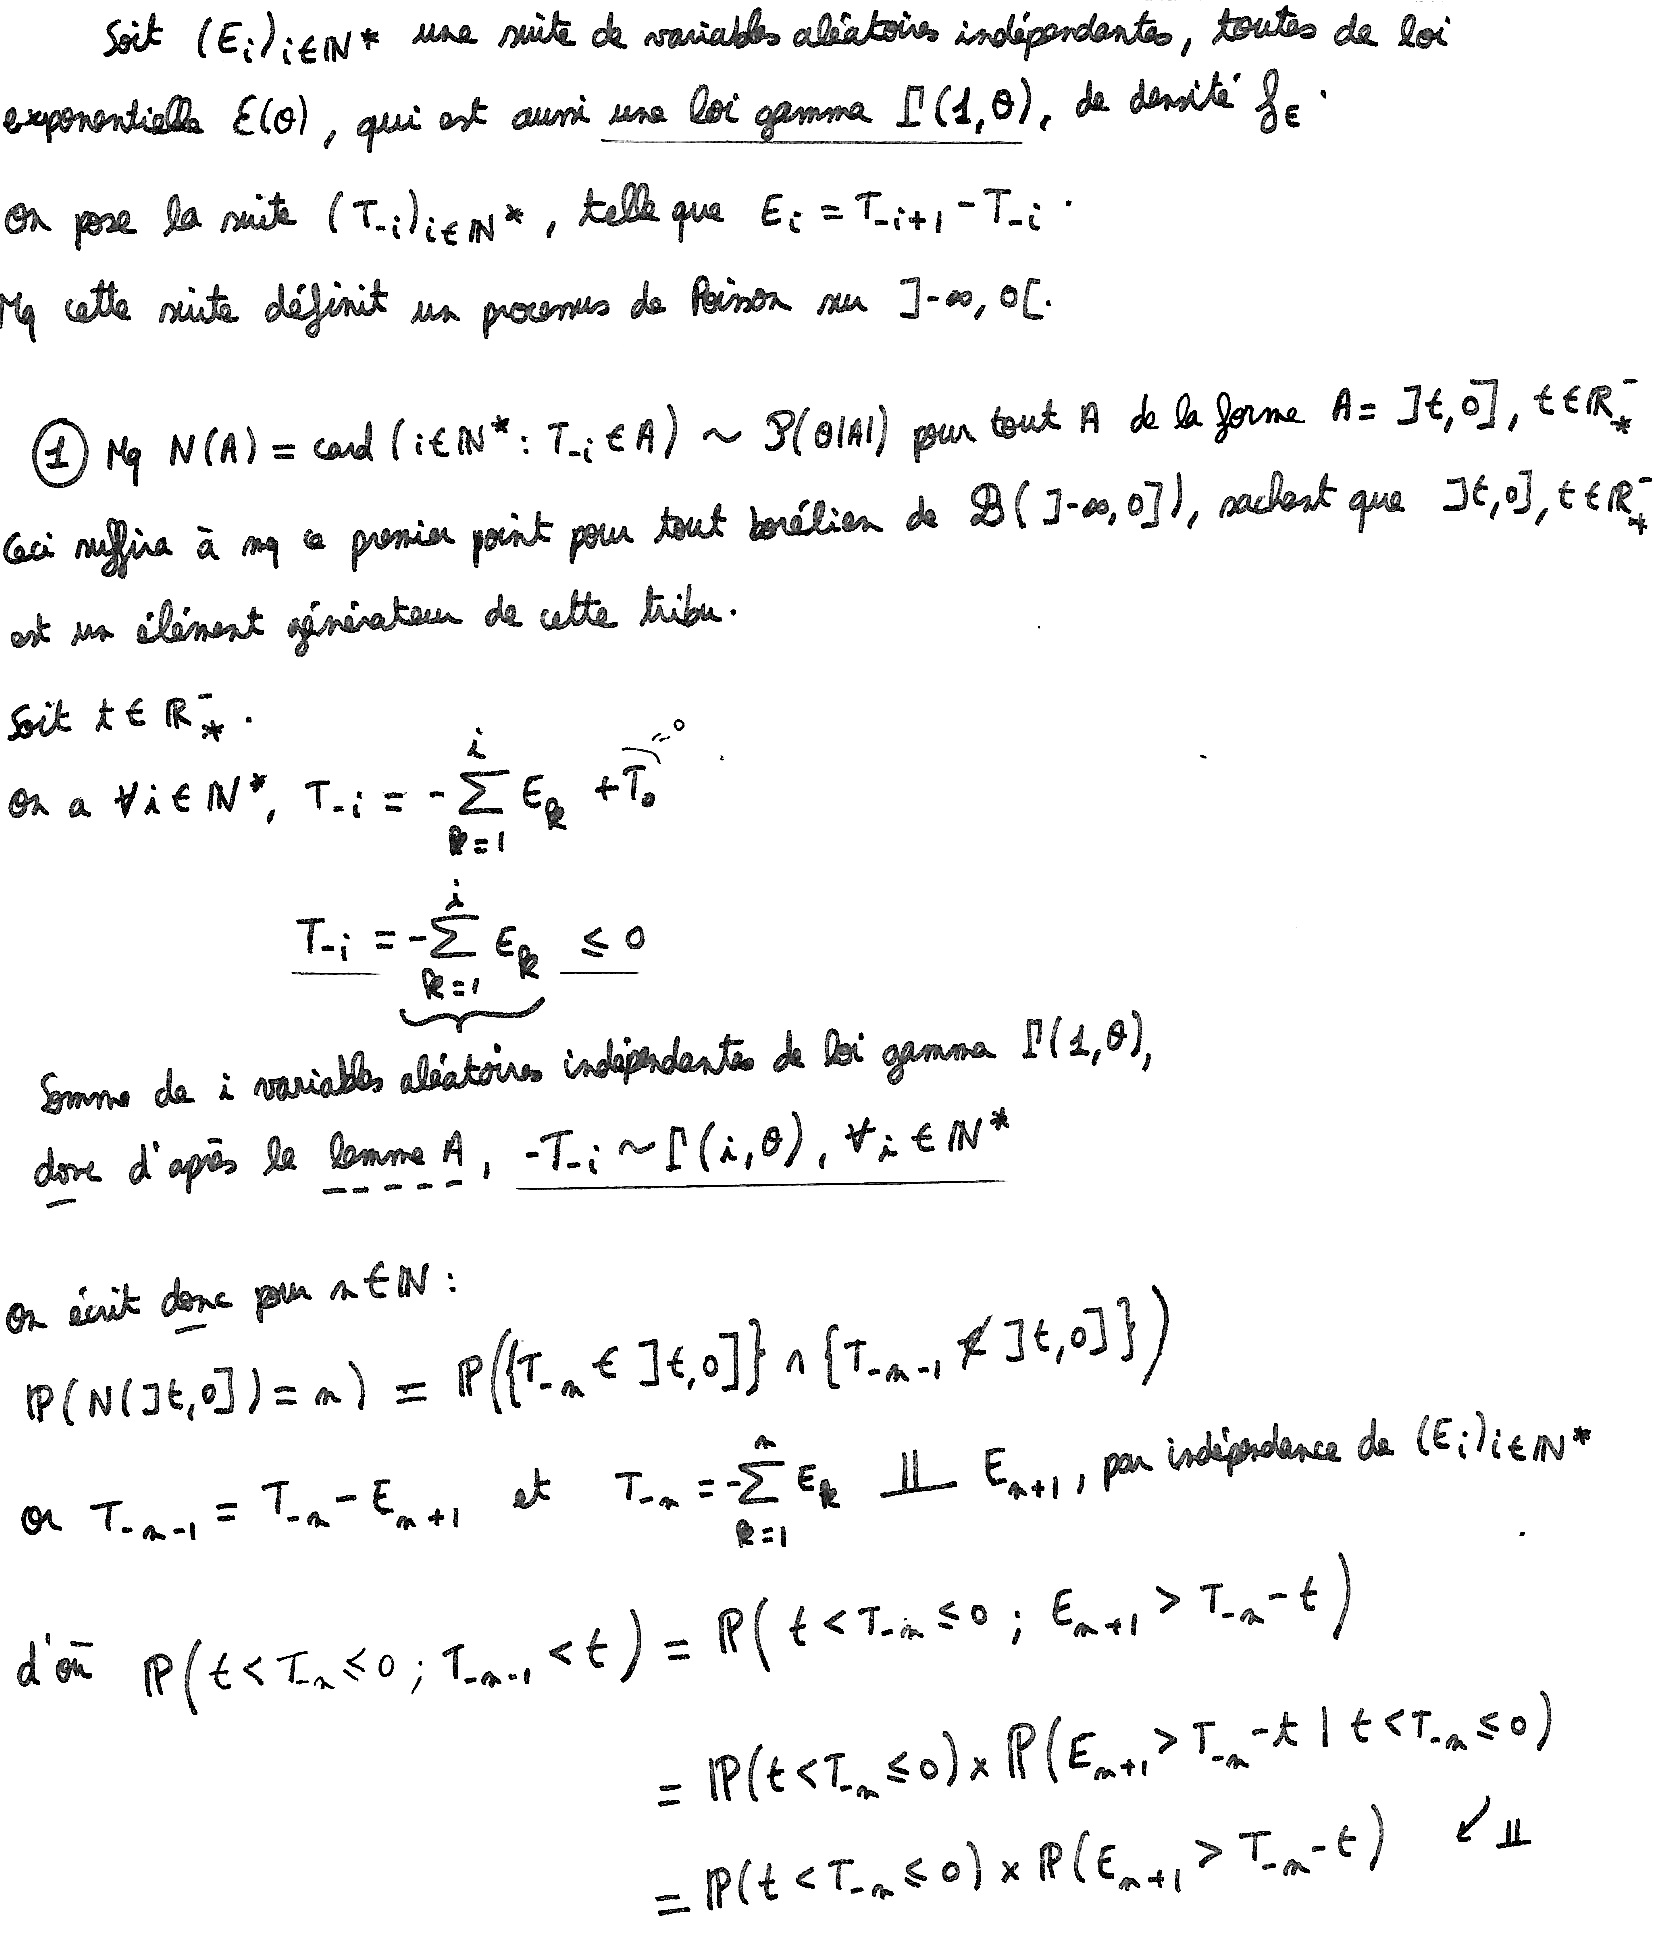 Soit (E_i)_{i∈ℕ*} une suite de variables aléatoires indépendantes, toutes de loi
exponentielle Ɛ(θ), qui est aussi une loi gamma Γ(1,θ), de densité f_E.
On pose la suite (T_{-i})_{i∈ℕ*}, telle que E_i = T_{-i+1} - T_{-i}.
Mq cette suite définit un processus de Poisson sur ]-∞, 0[.
① Mq N(A) = card(i∈ℕ* : T_{-i} ∈ A) ~ P(θ|A|) pour tout A de la forme A = ]t,0], t∈ℝ_*^-
Ceci suffira à mq ce premier point pour tout borélien de B(]-∞,0]), sachant que ]t,0], t∈ℝ_*^-
est un élément générateur de cette tribu.
Soit t ∈ ℝ_*^-.
On a ∀i∈ℕ*, T_{-i} = -∑_{k=1}^{i} E_k + T_0 = 0
T_{-i} = -∑_{k=1}^{i} E_k ≤ 0
Somme de i variables aléatoires indépendantes de loi gamma Γ(1,θ),
donc d'après le lemme A, -T_{-i} ~ Γ(i,θ), ∀i∈ℕ*
On écrit donc pour n∈ℕ :
ℙ(N(]t,0]) = n) = ℙ({T_{-n} ∈ ]t,0]} ∩ {T_{-n-1} ∉ ]t,0]})
or T_{-n-1} = T_{-n} - E_{n+1} et T_{-n} = -∑_{k=1}^{n} E_k ⫫ E_{n+1}, par indépendance de (E_i)_{i∈ℕ*}
d'où ℙ(t < T_{-n} ≤ 0 ; T_{-n-1} < t) = ℙ(t < T_{-n} ≤ 0 ; E_{n+1} > T_{-n} - t)
= ℙ(t < T_{-n} ≤ 0) × ℙ(E_{n+1} > T_{-n} - t | t < T_{-n} ≤ 0)
= ℙ(t < T_{-n} ≤ 0) × ℙ(E_{n+1} > T_{-n} - t) ↙ ⫫